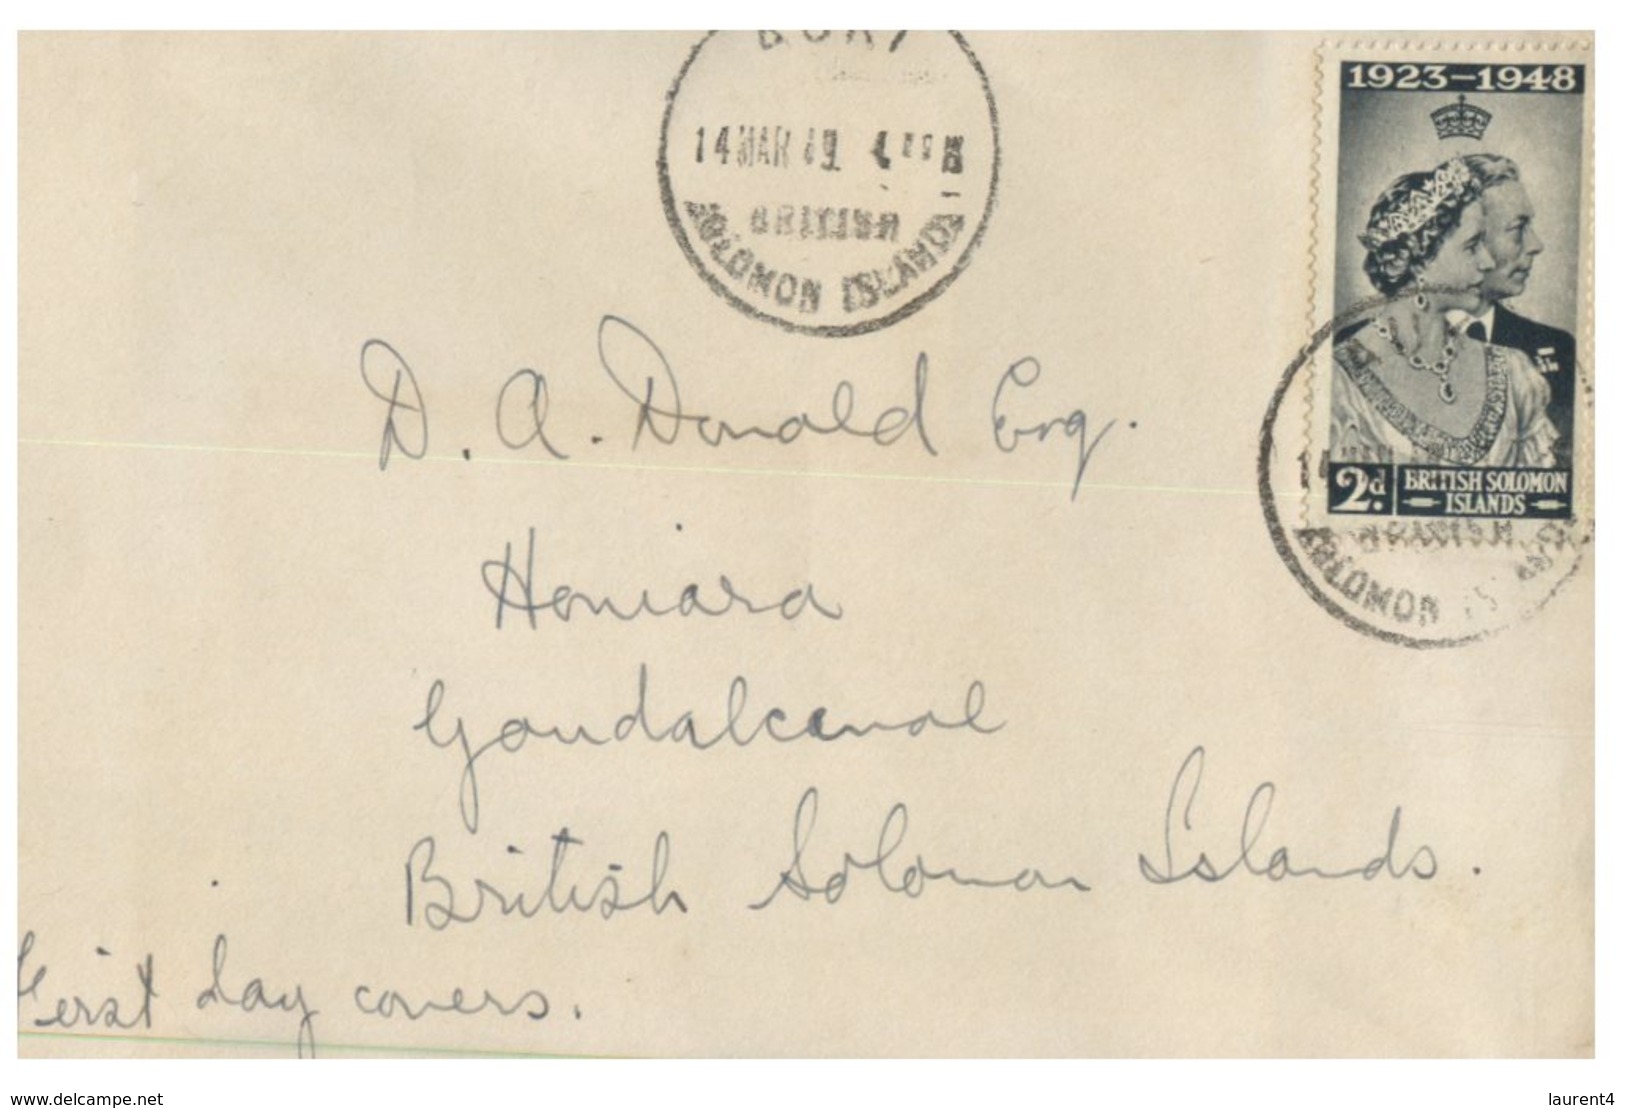 14 MAR 49
BRITISH
SOLOMON ISLANDS
1923-1948
2d.
BRITISH SOLOMON
ISLANDS
SOLOMON
D. A. Donald Esq.
Honiara
Gaudalcanal
British Solomon Islands.
First day covers.
www.delcampe.net
laurent4